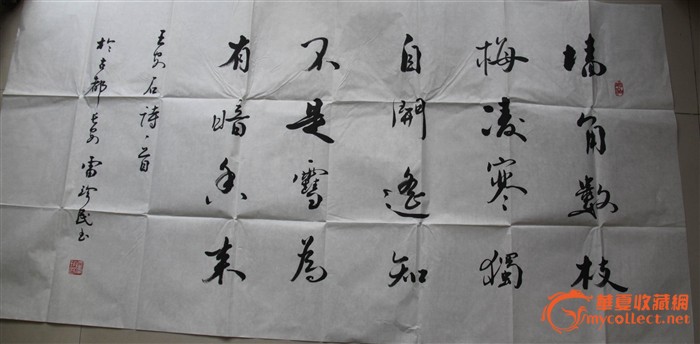 墙角数枝
梅凌寒獨
自開遙知
不是雪為
有暗香来
王安石詩一首
於古都長安雷珍民书
華夏收藏網
mycollect.net